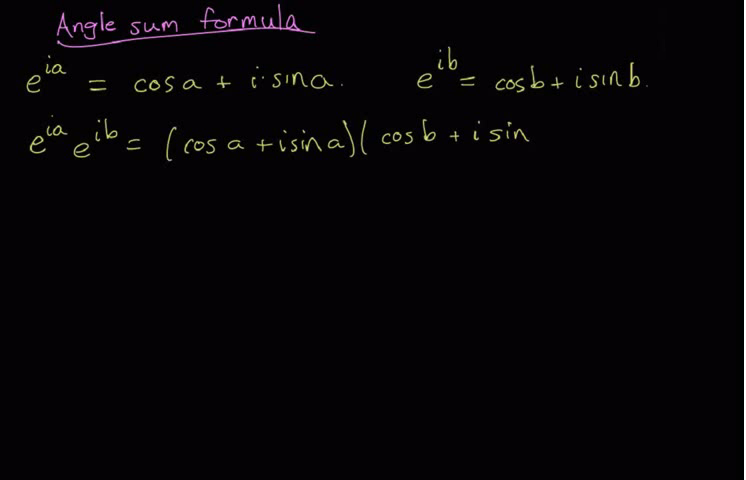 Angle sum formula
e^{ia} = cos a + i·sin a. e^{ib} = cos b + i sin b.
e^{ia} e^{ib} = (cos a + i sin a)(cos b + i sin